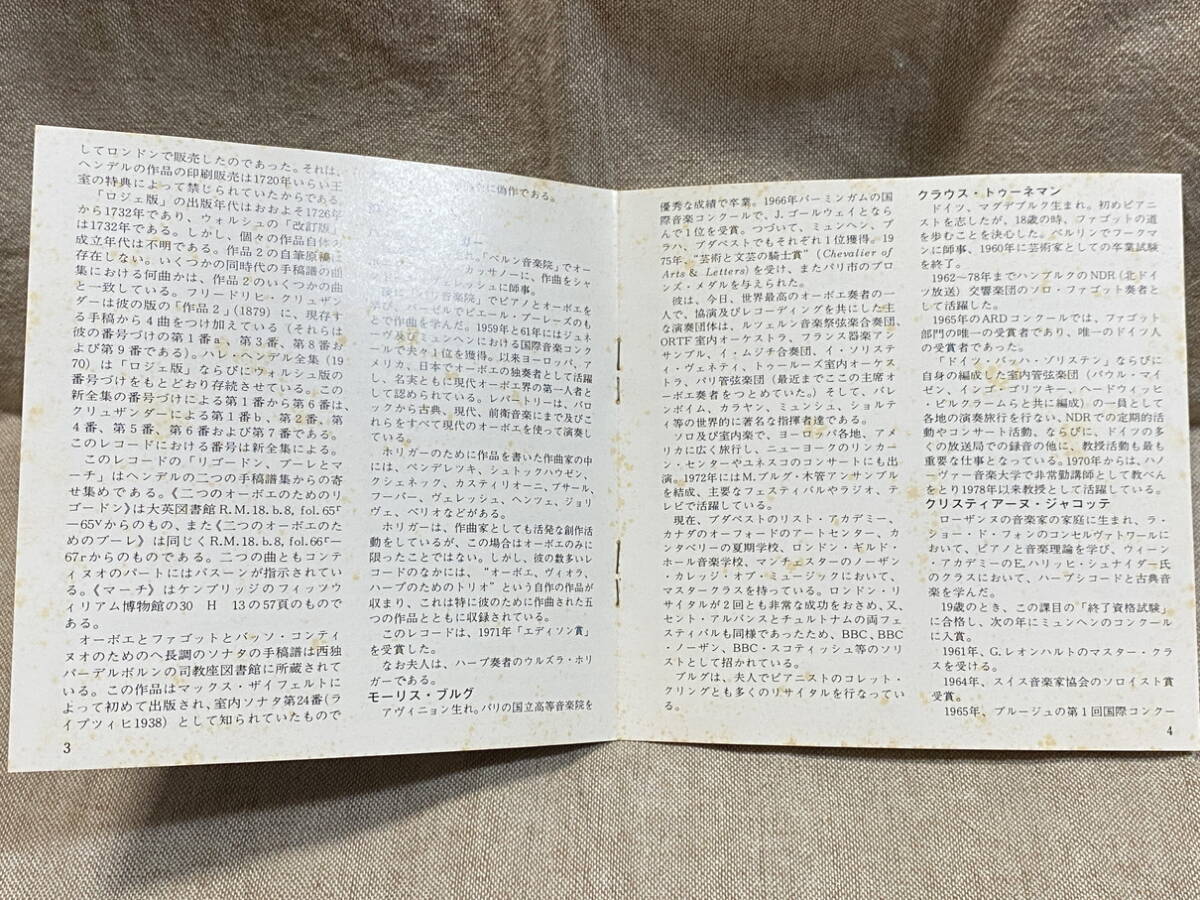 してロンドンで販売したのであった。それは、
ヘンデルの作品の印刷販売は1720年いらい王
室の特典によって禁じられていたからである。
「ロジェ版」の出版年代はおおよそ1726年
から1732年であり、ウォルシュの「改訂版」
は1732年である。しかし、個々の作品自体の
成立年代は不明である。作品2の自筆原稿は
存在しない。いくつかの同時代の手稿譜の曲
集における何曲かは、作品2のいくつかの曲
と一致している。フリードリヒ・クリュザン
ダーは彼の版の「作品2」(1879)に、現存す
る手稿から4曲をつけ加えている(それらは
彼の番号づけの第1番a、第3番、第8番お
よび第9番である)。ハレ・ヘンデル全集(19
70)は「ロジェ版」ならびにウォルシュ版の
番号づけをもとどおり存続させている。この
新全集の番号づけによる第1番から第6番は、
クリュザンダーによる第1番b、第2番、第
4番、第5番、第6番および第7番である。
このレコードにおける番号は新全集による。
このレコードの「リゴードン、ブーレとマ
ーチ」はヘンデルの二つの手稿譜集からの寄
せ集めである。《二つのオーボエのためのリ
ゴードン》は大英図書館R.M.18.b.8, fol.65r
―65Vからのもの、また《二つのオーボエのた
めのブーレ》は同じくR.M.18.b.8, fol.66r―
67rからのものである。二つの曲ともコンテ
ィヌオのパートにはバスーンが指示されてい
る。《マーチ》はケンブリッジのフィッツウ
ィリアム博物館の30 H 13の57頁のもので
ある。
オーボエとファゴットとバッソ・コンティ
ヌオのためのヘ長調のソナタの手稿譜は西独
パーデルボルンの司教座図書館に所蔵されて
いる。この作品はマックス・ザイフェルトに
よって初めて出版され、室内ソナタ第24番(ラ
イプツィヒ1938)として知られていたもので
3
に偽作である。
ガー
れ。「ベルン音楽院」でオー
カッサノーに、作曲をシャ
ヴェレッシュに師事。
「パリ音楽院」でピアノとオーボエを
バーゼルでピエール・ブーレーズのも
とで作曲を学んだ。1959年と61年にはジュネ
ーヴ及びミュンヘンにおける国際音楽コンク
ールで夫々1位を獲得。以来ヨーロッパ、ア
メリカ、日本でオーボエの独奏者として活躍
し、名実ともに現代オーボエ界の第一人者と
して認められている。レパートリーは、バロ
ックから古典、現代、前衛音楽にまで及びこ
れらをすべて現代のオーボエを使って演奏し
ている。
ホリガーのために作品を書いた作曲家の中
には、ペンデレツキ、シュトックハウゼン、
クシェネック、カスティリオーニ、プサール、
フーバー、ヴェレッシュ、ヘンツェ、ジョリ
ヴェ、ベリオなどがある。
ホリガーは、作曲家としても活発な創作活
動をしているが、この場合はオーボエのみに
限ったことではない。しかし、彼の数多いレ
コードのなかには、“オーボエ、ヴィオラ、
ハープのためのトリオ”という自作の作品が
収まり、これは特に彼のために作曲された五
つの作品とともに収録されている。
このレコードは、1971年「エディソン賞」
を受賞した。
なお夫人は、ハープ奏者のウルズラ・ホリ
ガーである。
モーリス・ブルグ
アヴィニョン生れ。パリの国立高等音楽院を
優秀な成績で卒業。1966年バーミンガムの国
際音楽コンクールで、J.ゴールウェイとなら
んで1位を受賞。つづいて、ミュンヘン、プ
ラハ、ブダペストでもそれぞれ1位獲得。19
75年、“芸術と文芸の騎士賞”(Chevalier of
Arts & Letters)を受け、またパリ市のブロ
ンズ・メダルを与えられた。
彼は、今日、世界最高のオーボエ奏者の一
人で、協演及びレコーディングを共にした主
な演奏団体は、ルツェルン音楽祭弦楽合奏団、
ORTF室内オーケストラ、フランス器楽アン
サンブル、イ・ムジチ合奏団、イ・ソリステ
ィ・ヴェネティ、トゥールーズ室内オーケス
トラ、パリ管弦楽団(最近までここの主席オ
ーボエ奏者をつとめていた)そして、バレ
ンボイム、カラヤン、ミュンシュ、ショルテ
ィ等の世界的に著名な指揮者達である。
ソロ及び室内楽で、ヨーロッパ各地、アメ
リカに広く旅行し、ニューヨークのリンカー
ン・センターやユネスコのコンサートにも出
演。1972年にはM.ブルグ・木管アンサンブル
を結成、主要なフェスティバルやラジオ、テ
レビで活躍している。
現在、ブダペストのリスト・アカデミー、
カナダのオーフォードのアートセンター、カ
ンタベリーの夏期学校、ロンドン・ギルド・
ホール音楽学校、マンチェスターのノーザン
・カレッジ・オブ・ミュージックにおいて、
マスタークラスを持っている。ロンドン・リ
サイタルが2回とも非常な成功をおさめ、又、
セント・アルバンスとチュルトナムの両フェ
スティバルも同様であったため、BBC、BBC
・ノーザン、BBC・スコティッシュ等のソリ
ストとして招かれている。
ブルグは、夫人でピアニストのコレット・
クリングとも多くのリサイタルを行なってい
る。
クラウス・トゥーネマン
ドイツ、マグデブルク生まれ。初めピアニ
ストを志したが、18歳の時、ファゴットの道
を歩むことを決心した。ベルリンでフークマ
ンに師事、1960年に芸術家としての卒業試験
を終了。
1962〜78年までハンブルクのNDR(北ドイ
ツ放送)交響楽団のソロ・ファゴット奏者と
して活躍した。
1965年のARDコンクールでは、ファゴット
部門の唯一の受賞者であり、唯一のドイツ人
の受賞者であった。
「ドイツ・バッハ・ゾリステン」ならびに
自身の編成した室内管弦楽団(パウル・マイ
ゼン、インゴ・ゴリツキー、ヘードウィッヒ
・ビルクラームらと共に編成)の一員として
各地の演奏旅行を行ない、NDRでの定期的活
動やコンサート活動、ならびに、ドイツの多
くの放送局での録音の他に、教授活動も最も
重要な仕事となっている。1970年からは、ハノ
ーヴァー音楽大学で非常勤講師として教べん
をとり1978年以来教授として活躍している。
クリスティアーヌ・ジャコッテ
ローザンヌの音楽家の家庭に生まれ、ラ・
ショー・ド・フォンのコンセルヴァトワールに
おいて、ピアノと音楽理論を学び、ウィーン
・アカデミーのE.ハリッヒ・シュナイダー氏
のクラスにおいて、ハープシコードと古典音
楽を学んだ。
19歳のとき、この課目の「終了資格試験」
に合格し、次の年にミュンヘンのコンクール
に入賞。
1961年、G.レオンハルトのマスター・クラ
スを受ける。
1964年、スイス音楽家協会のソロイスト賞
受賞。
1965年、ブルージュの第1回国際コンクー
4